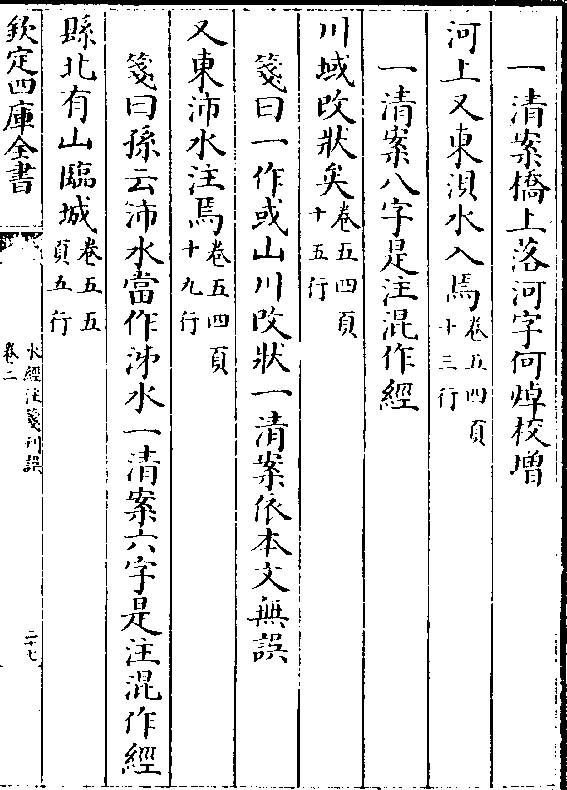 一清案橋上落河字何焯校增
河上又東湨水入焉卷五四頁十三行
一清案八字是注混作經
川域改狀矣卷五四頁十五行
箋曰一作或山川改狀一清案依本文無誤
又東沛水注焉卷五四頁十九行
箋曰孫云沛水當作沸水一清案六字是注混作經
縣北有山臨城卷五五頁五行
欽定四庫全書
水經注箋刊誤
卷二
二十七